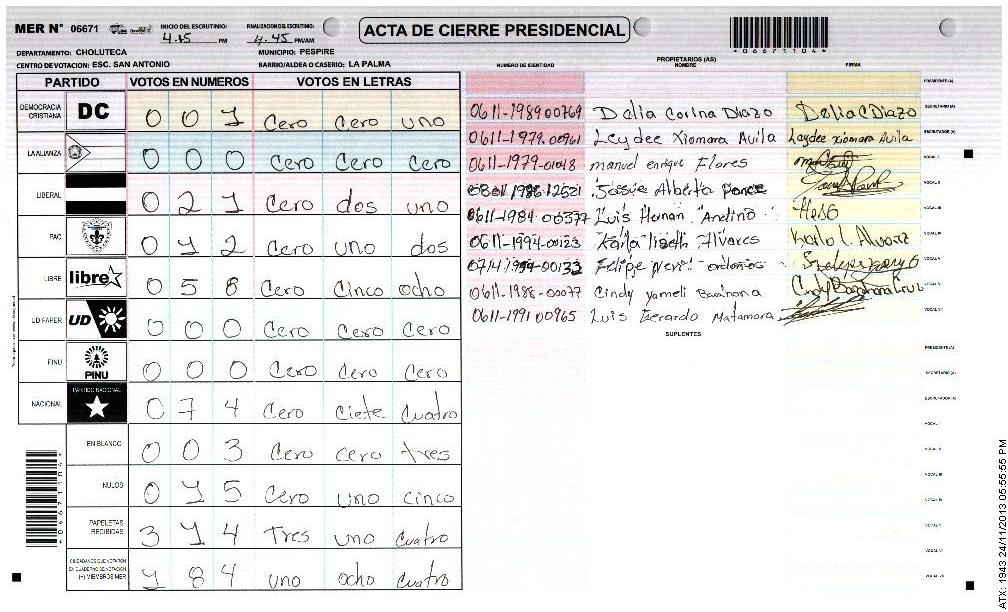 MER N° 06671
INICIO DEL ESCRUTINIO: 4:15 PM
FINALIZACION DEL ESCRUTINIO: 4:45 PM/AM
ACTA DE CIERRE PRESIDENCIAL
* 0 6 6 7 1 1 0 4 *
DEPARTAMENTO: CHOLUTECA
MUNICIPIO: PESPIRE
CENTRO DE VOTACION: ESC. SAN ANTONIO
BARRIO/ALDEA O CASERIO: LA PALMA
PARTIDO VOTOS EN NUMEROS VOTOS EN LETRAS
DEMOCRACIA CRISTIANA DC 0 0 1 Cero Cero uno
LA ALIANZA 0 0 0 Cero Cero Cero
LIBERAL 0 2 1 Cero dos uno
PAC 0 1 2 Cero uno dos
LIBRE libre 0 5 8 Cero Cinco ocho
UD FAPER UD 0 0 0 Cero Cero Cero
PINU PINU 0 0 0 Cero Cero Cero
NACIONAL PARTIDO NACIONAL 0 7 4 Cero Ciete Cuatro
EN BLANCO 0 0 3 Cero cero tres
NULOS 0 1 5 Cero uno cinco
PAPELETAS RECIBIDAS 3 1 4 Tres uno Cuatro
CIUDADANOS QUE VOTARON EN CUADERNO DE VOTACION (+) MIEMBROS MER 1 8 4 uno ocho Cuatro
* 0 6 6 7 1 1 0 4 *
PROPIETARIOS (AS)
NUMERO DE IDENTIDAD NOMBRE FIRMA
PRESIDENTE(A)
0611-1989 00769 Delia Corina Diazo Delia C Diazo SECRETARIO (A)
0611-1979-00961 Leydee Xiomara Avila Leydee xiomara Avila ESCRUTADOR (A)
0611-1979-01048 manuel enrique Flores VOCAL I
Josue Alberto Ponce VOCAL II
0611-1984-00377 Luis Hernan Andino VOCAL III
0611-1994-00123 Karla lizeth Alvares Karla L. Alvarez VOCAL IV
Felipe VOCAL V
0611-1986-00077 Cindy yameli Barahona Cindy Barahona VOCAL VI
0611-1991 00965 Luis Gerardo Matamora VOCAL VII
SUPLENTES
PRESIDENTE (A)
SECRETARIO (A)
ESCRUTADOR (A)
VOCAL I
VOCAL II
VOCAL III
VOCAL IV
VOCAL V
VOCAL VI
VOCAL VII
ATX: 1943 24/11/2013 05:55:55 PM